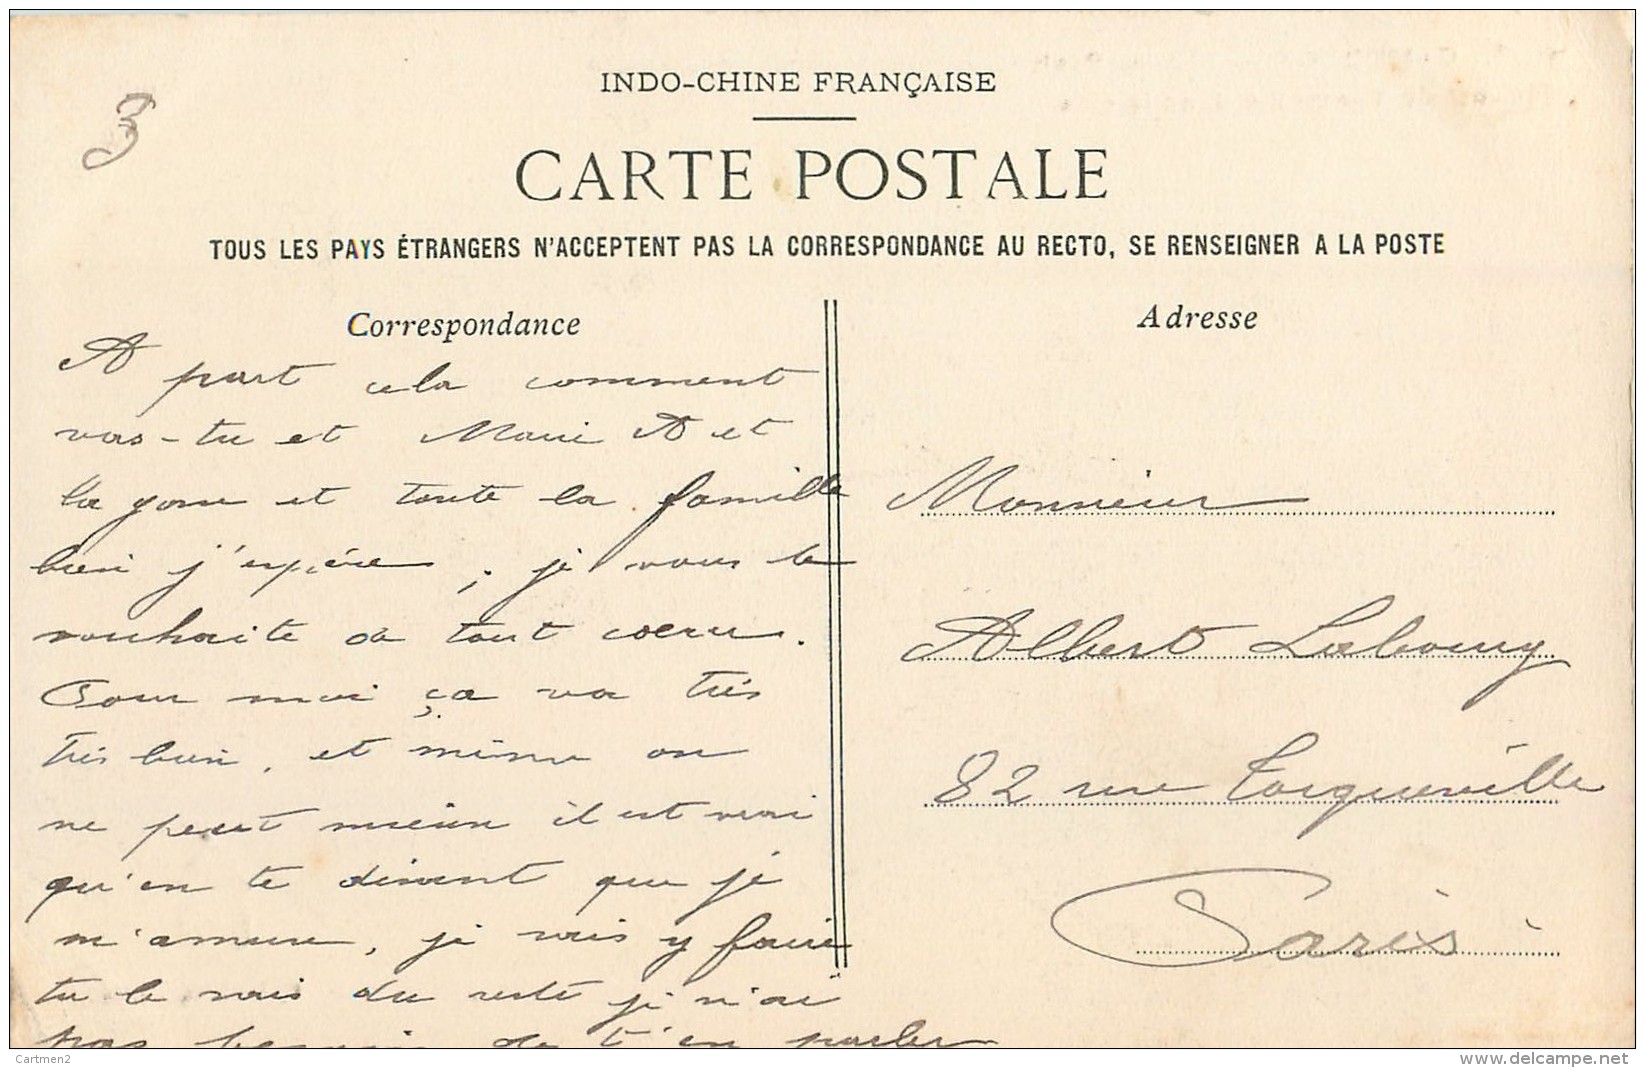 3
INDO-CHINE FRANÇAISE
CARTE POSTALE
TOUS LES PAYS ÉTRANGERS N'ACCEPTENT PAS LA CORRESPONDANCE AU RECTO, SE RENSEIGNER A LA POSTE
Correspondance
A part cela comment
vas-tu et Marie A et
ta gone et toute la famille
bien j'espère, je vous le
souhaite de tout cœur.
Pour moi ça va très
très bien, et même on
ne peut mieux il est vrai
qu'en te disant que je
m'amuse, je vais y faire
tu le sais du reste je n'ai
pas besoin de t'en parler
Adresse
Monsieur
Albert Labouy
82 rue Tocqueville
Paris
Cartmen2
www.delcampe.net